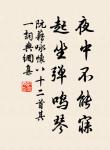 夜中不能寐
起坐弹鸣琴
阮籍咏怀八十二首其
一词典网集